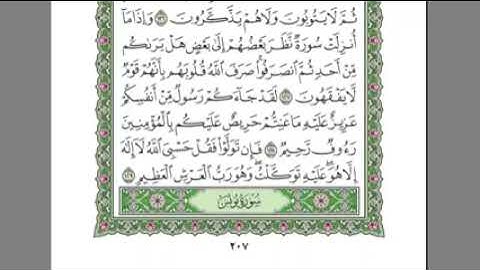 ثُمَّ لَا يَتُوبُونَ وَلَا هُمْ يَذَّكَّرُونَ ١٢٦ وَإِذَا مَا
أُنزِلَتْ سُورَةٌ نَّظَرَ بَعْضُهُمْ إِلَىٰ بَعْضٍ هَلْ يَرَىٰكُم
مِّنْ أَحَدٍ ثُمَّ ٱنصَرَفُوا۟ صَرَفَ ٱللَّهُ قُلُوبَهُم بِأَنَّهُمْ قَوْمٌ
لَّا يَفْقَهُونَ ١٢٧ لَقَدْ جَآءَكُمْ رَسُولٌ مِّنْ أَنفُسِكُمْ
عَزِيزٌ عَلَيْهِ مَا عَنِتُّمْ حَرِيصٌ عَلَيْكُم بِٱلْمُؤْمِنِينَ
رَءُوفٌ رَّحِيمٌ ١٢٨ فَإِن تَوَلَّوْا۟ فَقُلْ حَسْبِىَ ٱللَّهُ لَآ إِلَٰهَ
إِلَّا هُوَ ۖ عَلَيْهِ تَوَكَّلْتُ ۖ وَهُوَ رَبُّ ٱلْعَرْشِ ٱلْعَظِيمِ ١٢٩
سُورَةُ يُونُسَ
٢٠٧